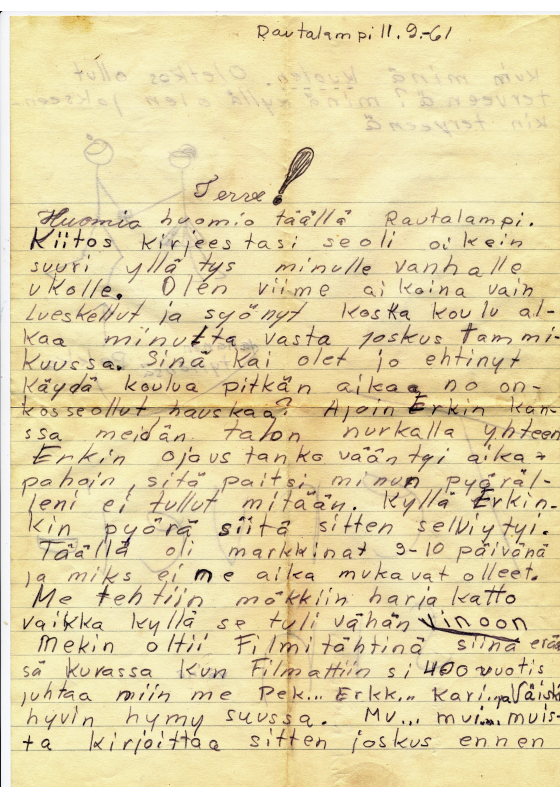 Rautalampi 11.9.-61
Terve!
Huomio huomio täällä Rautalampi.
Kiitos kirjeestasi seoli oikein
suuri yllätys minulle vanhalle
ukolle. Olen viime aikoina vain
lueskellut ja syönyt koska koulu al-
kaa minulta vasta joskus tammi-
kuussa. Sinä kai olet jo ehtinyt
käydä koulua pitkän aikaa no on-
kosseollut hauskaa? Ajoin Erkin kan-
ssa meidän talon nurkalla yhteen
Erkin ojaus tanko vääntyi aika
pahoin, sitä paitsi minun pyöräl-
leni ei tullut mitään. Kyllä Erkin-
kin pyörä siitä sitten selviytyi.
Täällä oli markkinat 9-10 päivänä
ja miks ei ne aika mukavat olleet.
Me tehtiin mökkiin harjakatto
vaikka kyllä se tuli vähän vinoon
Mekin oltii Filmitähtinä siinä erää
sä kuvassa kun Filmattiin si 400 vuotis
juhtaa niin me Pek... Erkk... Kari... ja Väiski
hyvin hymy suussa. Mu... mui... muis-
ta kirjoittaa sitten joskus ennen
kuin minä kuolen. Oletkos ollut
terveenä? minä kyllä olen jokseen-
kin terveenä